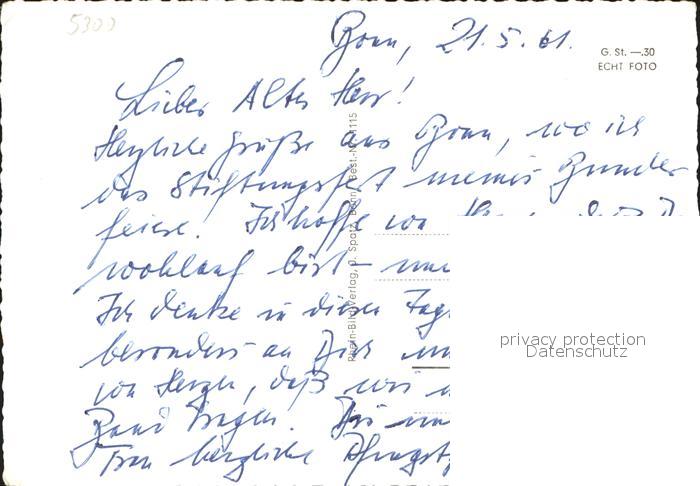 5300
Bonn, 21.5.61.
G. St. —.30
ECHT FOTO
Lieber Alter Herr!
Herzliche Grüße aus Bonn, wo ich
das Stiftungsfest meines Bundes
feiere. Ich hoffe von
wohlauf bist –
Ich denke in diesen
besonders an Dich
von Herzen, daß wir
Band tragen. Dir
Frau herzliche
Rhein-Bild-Verlag, Spatz, Bonn, Best.-Nr. 115
privacy protection
Datenschutz